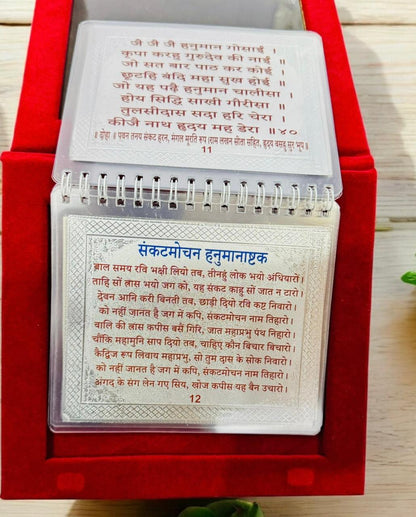 जै जै जै हनुमान गोसाईं ।
कृपा करहु गुरुदेव की नाईं ॥
जो सत बार पाठ कर कोई ।
छूटहि बंदि महा सुख होई ॥
जो यह पढ़ै हनुमान चालीसा ।
होय सिद्धि साखी गौरीसा ॥
तुलसीदास सदा हरि चेरा ।
कीजै नाथ हृदय मह डेरा ॥४०
॥ दोहा ॥ पवन तनय संकट हरन, मंगल मूरति रूप राम लखन सीता सहित, हृदय बसहु सुर भूप ॥
11
संकटमोचन हनुमानाष्टक
बाल समय रवि भक्षी लियो तब, तीनहुं लोक भयो अंधियारों ।
ताहि सों त्रास भयो जग को, यह संकट काहु सों जात न टारो ।
देवन आनि करी बिनती तब, छाड़ी दियो रवि कष्ट निवारो ।
को नहीं जानत है जग में कपि, संकटमोचन नाम तिहारो ।
बालि की त्रास कपीस बसैं गिरि, जात महाप्रभु पंथ निहारो ।
चौंकि महामुनि साप दियो तब, चाहिए कौन बिचार बिचारो ।
कैद्विज रूप लिवाय महाप्रभु, सो तुम दास के सोक निवारो ।
को नहीं जानत है जग में कपि, संकटमोचन नाम तिहारो ।
अंगद के संग लेन गए सिय, खोज कपीस यह बैन उचारो ।
12